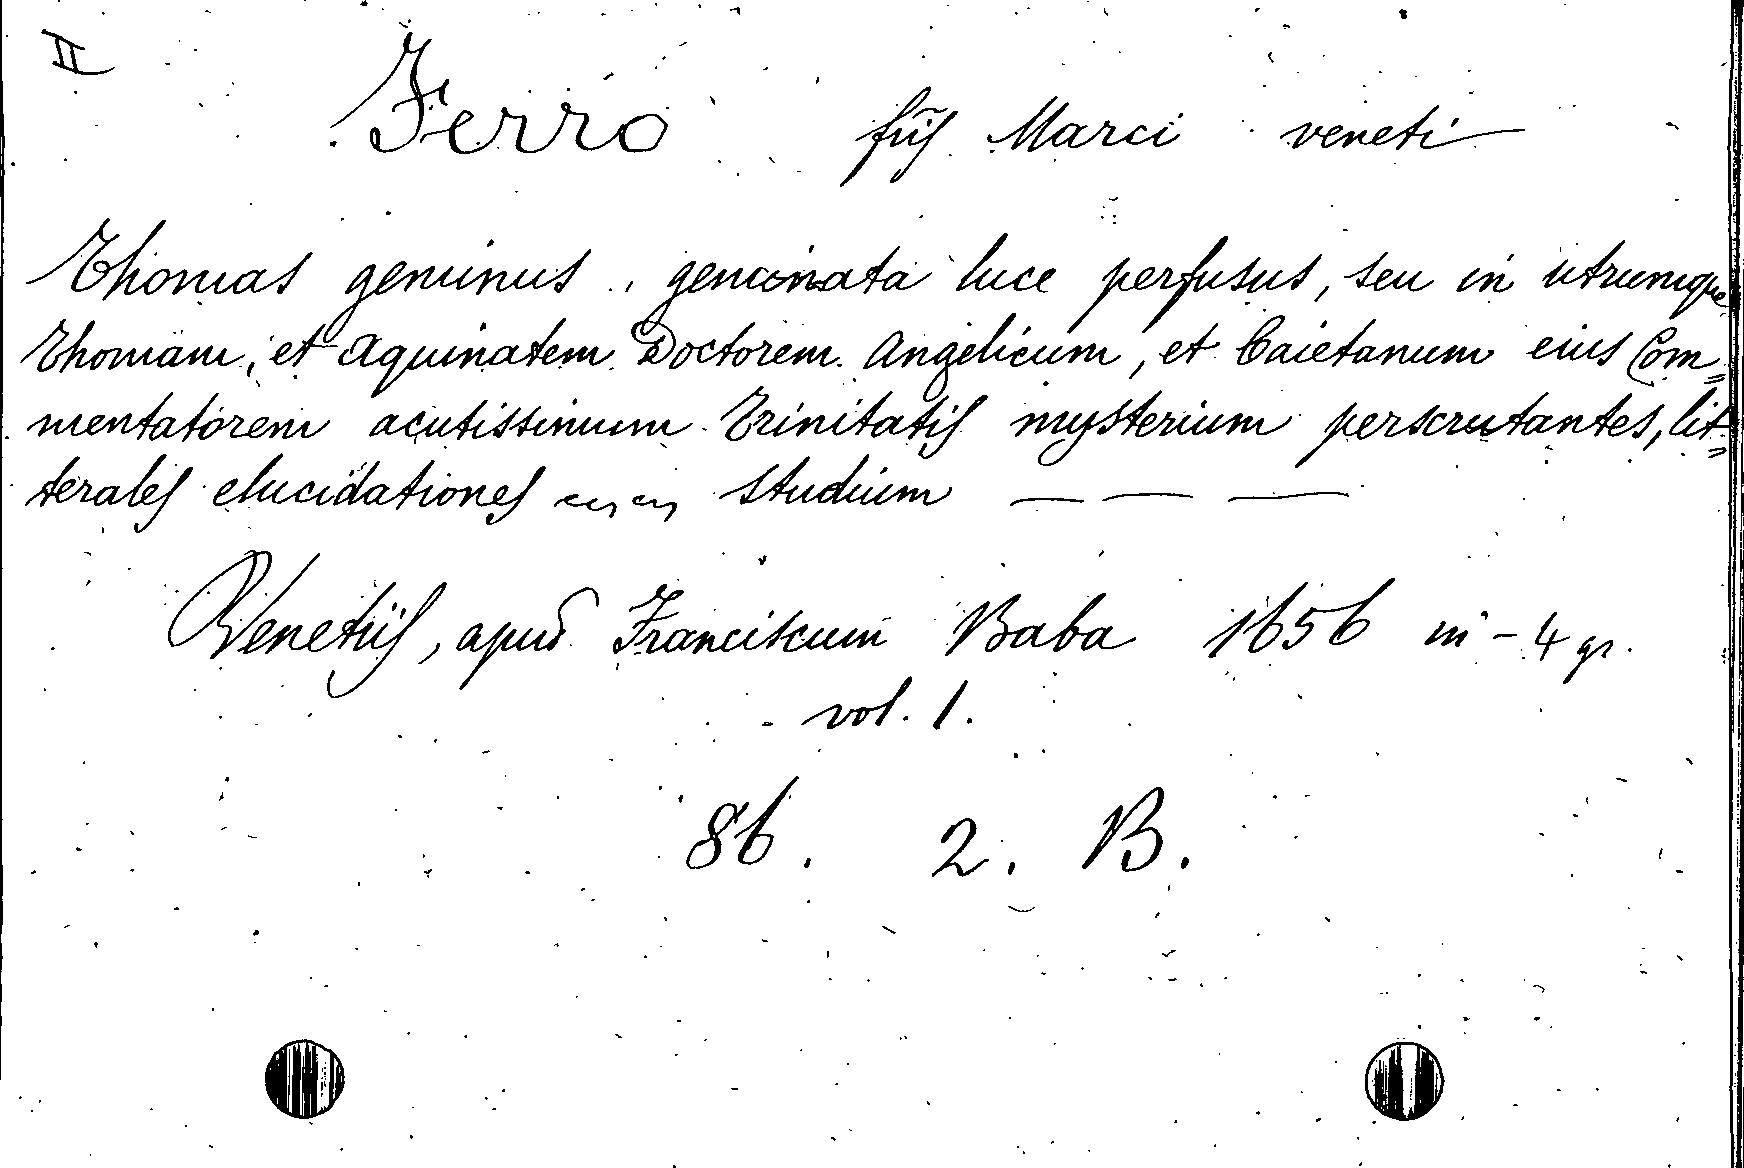 II
Ferro frīs Marci veneti
Thomas geminus, geminata luce perfusus, seu in utrumque
Thomam, et Aquinatem Doctorem Angelicum, et Caietanum eius Com=
mentatorem acutissimum Trinitatis mysterium perscrutantes, lit=
terales elucidationes studium — — —
Venetiis, apud Franciscum Baba 1656 in-4 gr.
vol. 1.
86. 2. B.